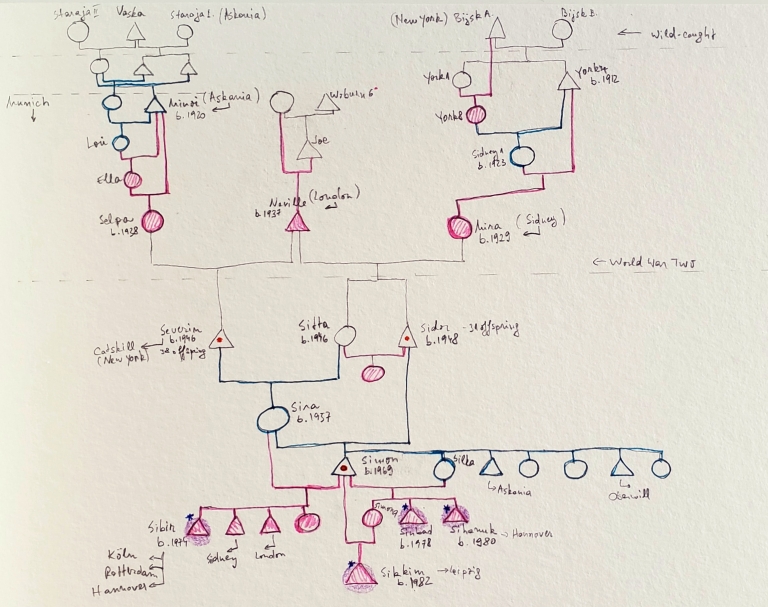 Staraja II Vaska Staraja I. (Askania)
(New York) Bijsk A. Bijsk B.
← Wild-caught
York A
York 4
b. 1912
Munich
↓
Minoi (Askania)
b. 1920
York B
Lori
Joe
Sidney A
b. 1923
Ella
Selpa
b. 1928
Neville (London)
b. 1937
Mina (Sidney)
b. 1929
← World War Two
Severin
b. 1946
38 offspring
Catskill
(New York)
Sitta
b. 1946
Sidor - 31 offspring
b. 1948
Sina
b. 1957
Simon
b. 1969
Silka
Askania
Sibir
b. 1974
Sidney
London
Simona
b. 1978
Sihanuk → Hannover
b. 1980
Köln
Rotterdam
Hannover
Sikkim → Leipzig
b. 1982